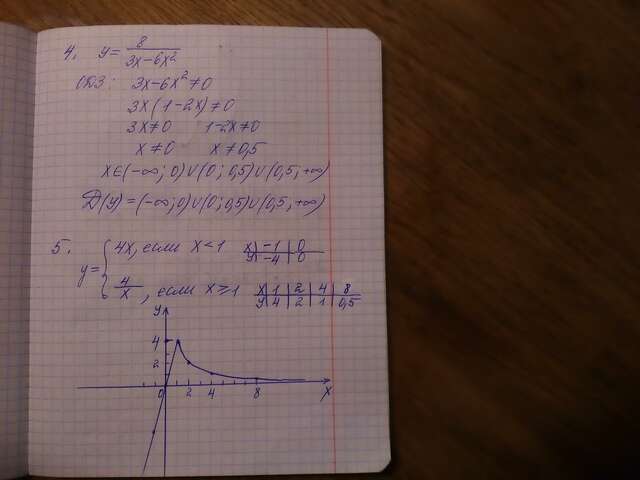 4. y = 8/(3x-6x²)
ОДЗ: 3x-6x²≠0
3x(1-2x)≠0
3x≠0 1-2x≠0
x≠0 x≠0,5
x∈(-∞; 0)∪(0; 0,5)∪(0,5; +∞)
D(y)=(-∞; 0)∪(0; 0,5)∪(0,5; +∞)
5. y= { 4x, если x<1 x | -1 | 0
y | -4 | 0
4/x, если x≥1 x | 1 | 2 | 4 | 8
y | 4 | 2 | 1 | 0,5
y
4
2
0 2 4 8 x